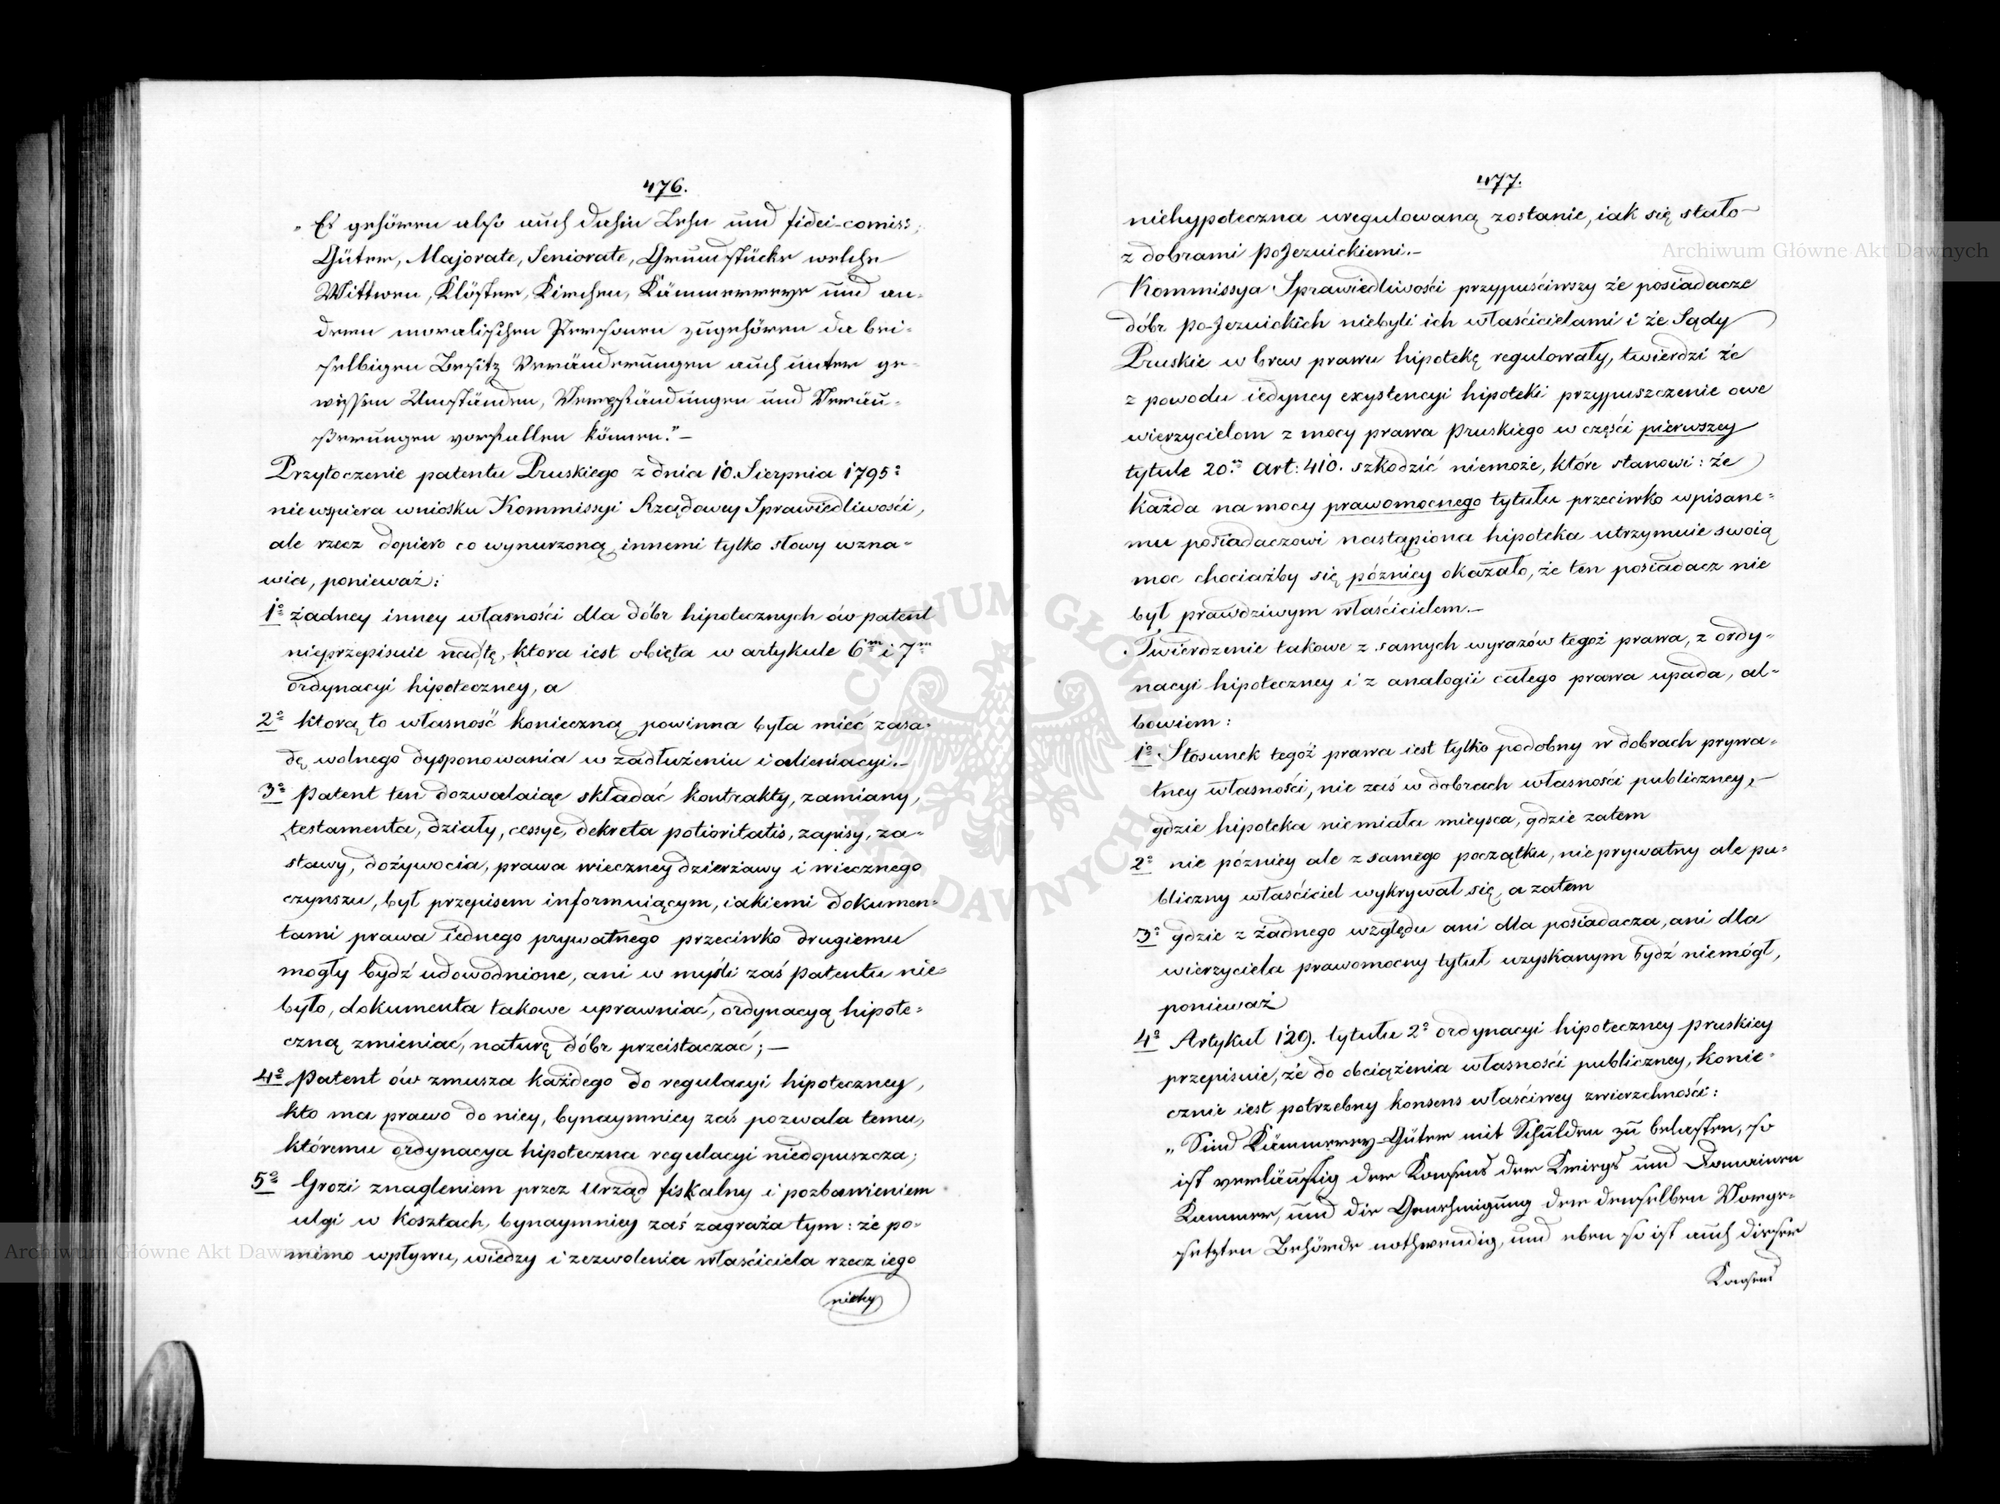 476.
„Es gehören also auch dahin Lehn und fidei-comiss,
Güter, Majorate, Seniorate, Grundstücke welche
Wittwen, Klöster, Kirchen, Kämmereyen und an-
deren moralischen Personen zugehören da bei-
selbigen Besitz Veränderungen auch unter ge-
wissen Umständen, Verpfändungen und Veräu-
sserungen vorfallen können.” –
Przytoczenie patentu Pruskiego z dnia 10. Sierpnia 1795:
niewspiera wniosku Kommissyi Rządowey Sprawiedliwości,
ale rzecz dopiero co wynurzoną innemi tylko słowy wzna-
wia, ponieważ:
1º żadney inney własności dla dóbr hipotecznych ów patent
nieprzepisuie nad tę, ktora iest obięta w artykule 6m i 7m
ordynacyi hipoteczney, a
2º ktorą to własność konieczną powinna była mieć zasa-
dę wolnego dysponowania w zadłużeniu i alienacyi. –
3º Patent ten dozwalaiąc składać kontrakty, zamiany,
testamenta, działy, cessye, dekreta potioritatis, zapisy, za-
stawy, dożywocia, prawa wieczney dzierżawy i wiecznego
czynszu, był przepisem informuiącym, iakiemi dokumen-
tami prawa iednego prywatnego przeciwko drugiemu
mogły bydź udowodnione, ani w myśli zaś patentu nie-
było, dokumenta takowe uprawniać, ordynacyą hipote-
czną zmieniać, naturę dóbr przeistaczać; –
4º Patent ów zmusza każdego do regulacyi hipoteczney,
kto ma prawo do niey, bynaymniey zaś pozwala temu,
któremu ordynacya hipoteczna regulacyi niedopuszcza;
5º Grozi znagleniem przez Urząd fiskalny i pozbawieniem
ulgi w kosztach, bynaymniey zaś zagraża tym: że po-
mimo wpływu, wiedzy i zezwolenia właściciela rzecz iego
niehy
477.
niehypoteczna uregulowaną zostanie, iak się stało
z dobrami poJezuickiemi. –
Kommissya Sprawiedliwości przypuściwszy że posiadacze
dóbr po-Jezuickich niebyli ich właścicielami i że Sądy
Pruskie w brew prawu hipotekę regulowały, twierdzi że
z powodu iedyney exystencyi hipoteki przypuszczenie owe
wierzycielom z mocy prawa Pruskiego w części pierwszey
tytule 20.m Art: 410. szkodzić niemoże, które stanowi: że
każda na mocy prawomocnego tytułu przeciwko wpisane-
mu posiadaczowi nastąpiona hipoteka utrzymuie swoią
moc chociażby się pózniey okazało, że ten posiadacz nie
był prawdziwym właścicielem. –
Twierdzenie takowe z samych wyrazów tegoż prawa, z ordy-
nacyi hipoteczney i z analogii całego prawa upada, al-
bowiem:
1º Stosunek tegoż prawa iest tylko podobny w dobrach prywa-
tney własności, nie zaś w dobrach własności publiczney, –
gdzie hipoteka niemiała mieysca, gdzie zatem
2º nie pózniey ale z samego początku, nie prywatny ale pu-
bliczny właściciel wykrywał się, a zatem
3º gdzie z żadnego względu ani dla posiadacza, ani dla
wierzyciela prawomocny tytuł uzyskanym bydź niemógł,
ponieważ
4º Artykuł 129. tytułu 2º ordynacyi hipoteczney pruskiey
przepisuie, że do obciążenia własności publiczney, konie-
cznie iest potrzebny konsens właściwey zwierzchności:
„Sind Kämmerey-Güter mit Schulden zu belasten, so
ist verläufig der Konsens der Kriegs und Domainen
Kammer, und die Genehmigung der denselben Vorge-
setzten Behörde nothwendig, und eben so ist auch dieser
Konsens
Archiwum Główne Akt Dawnych
Archiwum Główne Akt Dawnych
ARCHIWUM GŁÓWNE AKT DAWNYCH